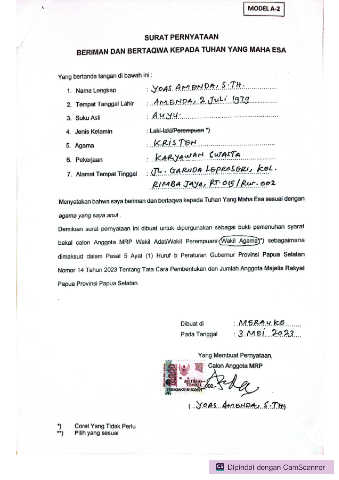 MODEL A-2
SURAT PERNYATAAN
BERIMAN DAN BERTAQWA KEPADA TUHAN YANG MAHA ESA
Yang bertanda tangan di bawah ini :
1. Nama Lengkap : YOAS AMENDA, S.TH.
2. Tempat Tanggal Lahir : AMENDA, 2 JULI 1979
3. Suku Asli : AUYU
4. Jenis Kelamin : Laki-laki/Perempuan *)
5. Agama : KRISTEN
6. Pekerjaan : KARYAWAN SWASTA
7. Alamat Tempat Tinggal : JL. GARUDA LEPROSERI, KEL.
RIMBA JAYA, RT 015/RW. 002
Menyatakan bahwa saya beriman dan bertaqwa kepada Tuhan Yang Maha Esa sesuai dengan
agama yang saya anut.
Demikian surat pernyataan ini dibuat untuk dipergunakan sebagai bukti pemenuhan syarat
bakal calon Anggota MRP Wakil Adat/Wakil Perempuan/Wakil Agama**) sebagaimana
dimaksud dalam Pasal 5 Ayat (1) Huruf b Peraturan Gubernur Provinsi Papua Selatan
Nomor 14 Tahun 2023 Tentang Tata Cara Pembentukan dan Jumlah Anggota Majelis Rakyat
Papua Provinsi Papua Selatan.
Dibuat di : MERAUKE
Pada Tanggal : 3 MEI 2023
Yang Membuat Pernyataan,
Calon Anggota MRP
YOAS AMENDA, S.TH
*) Coret Yang Tidak Perlu
**) Pilih yang sesuai
CS Dipindai dengan CamScanner